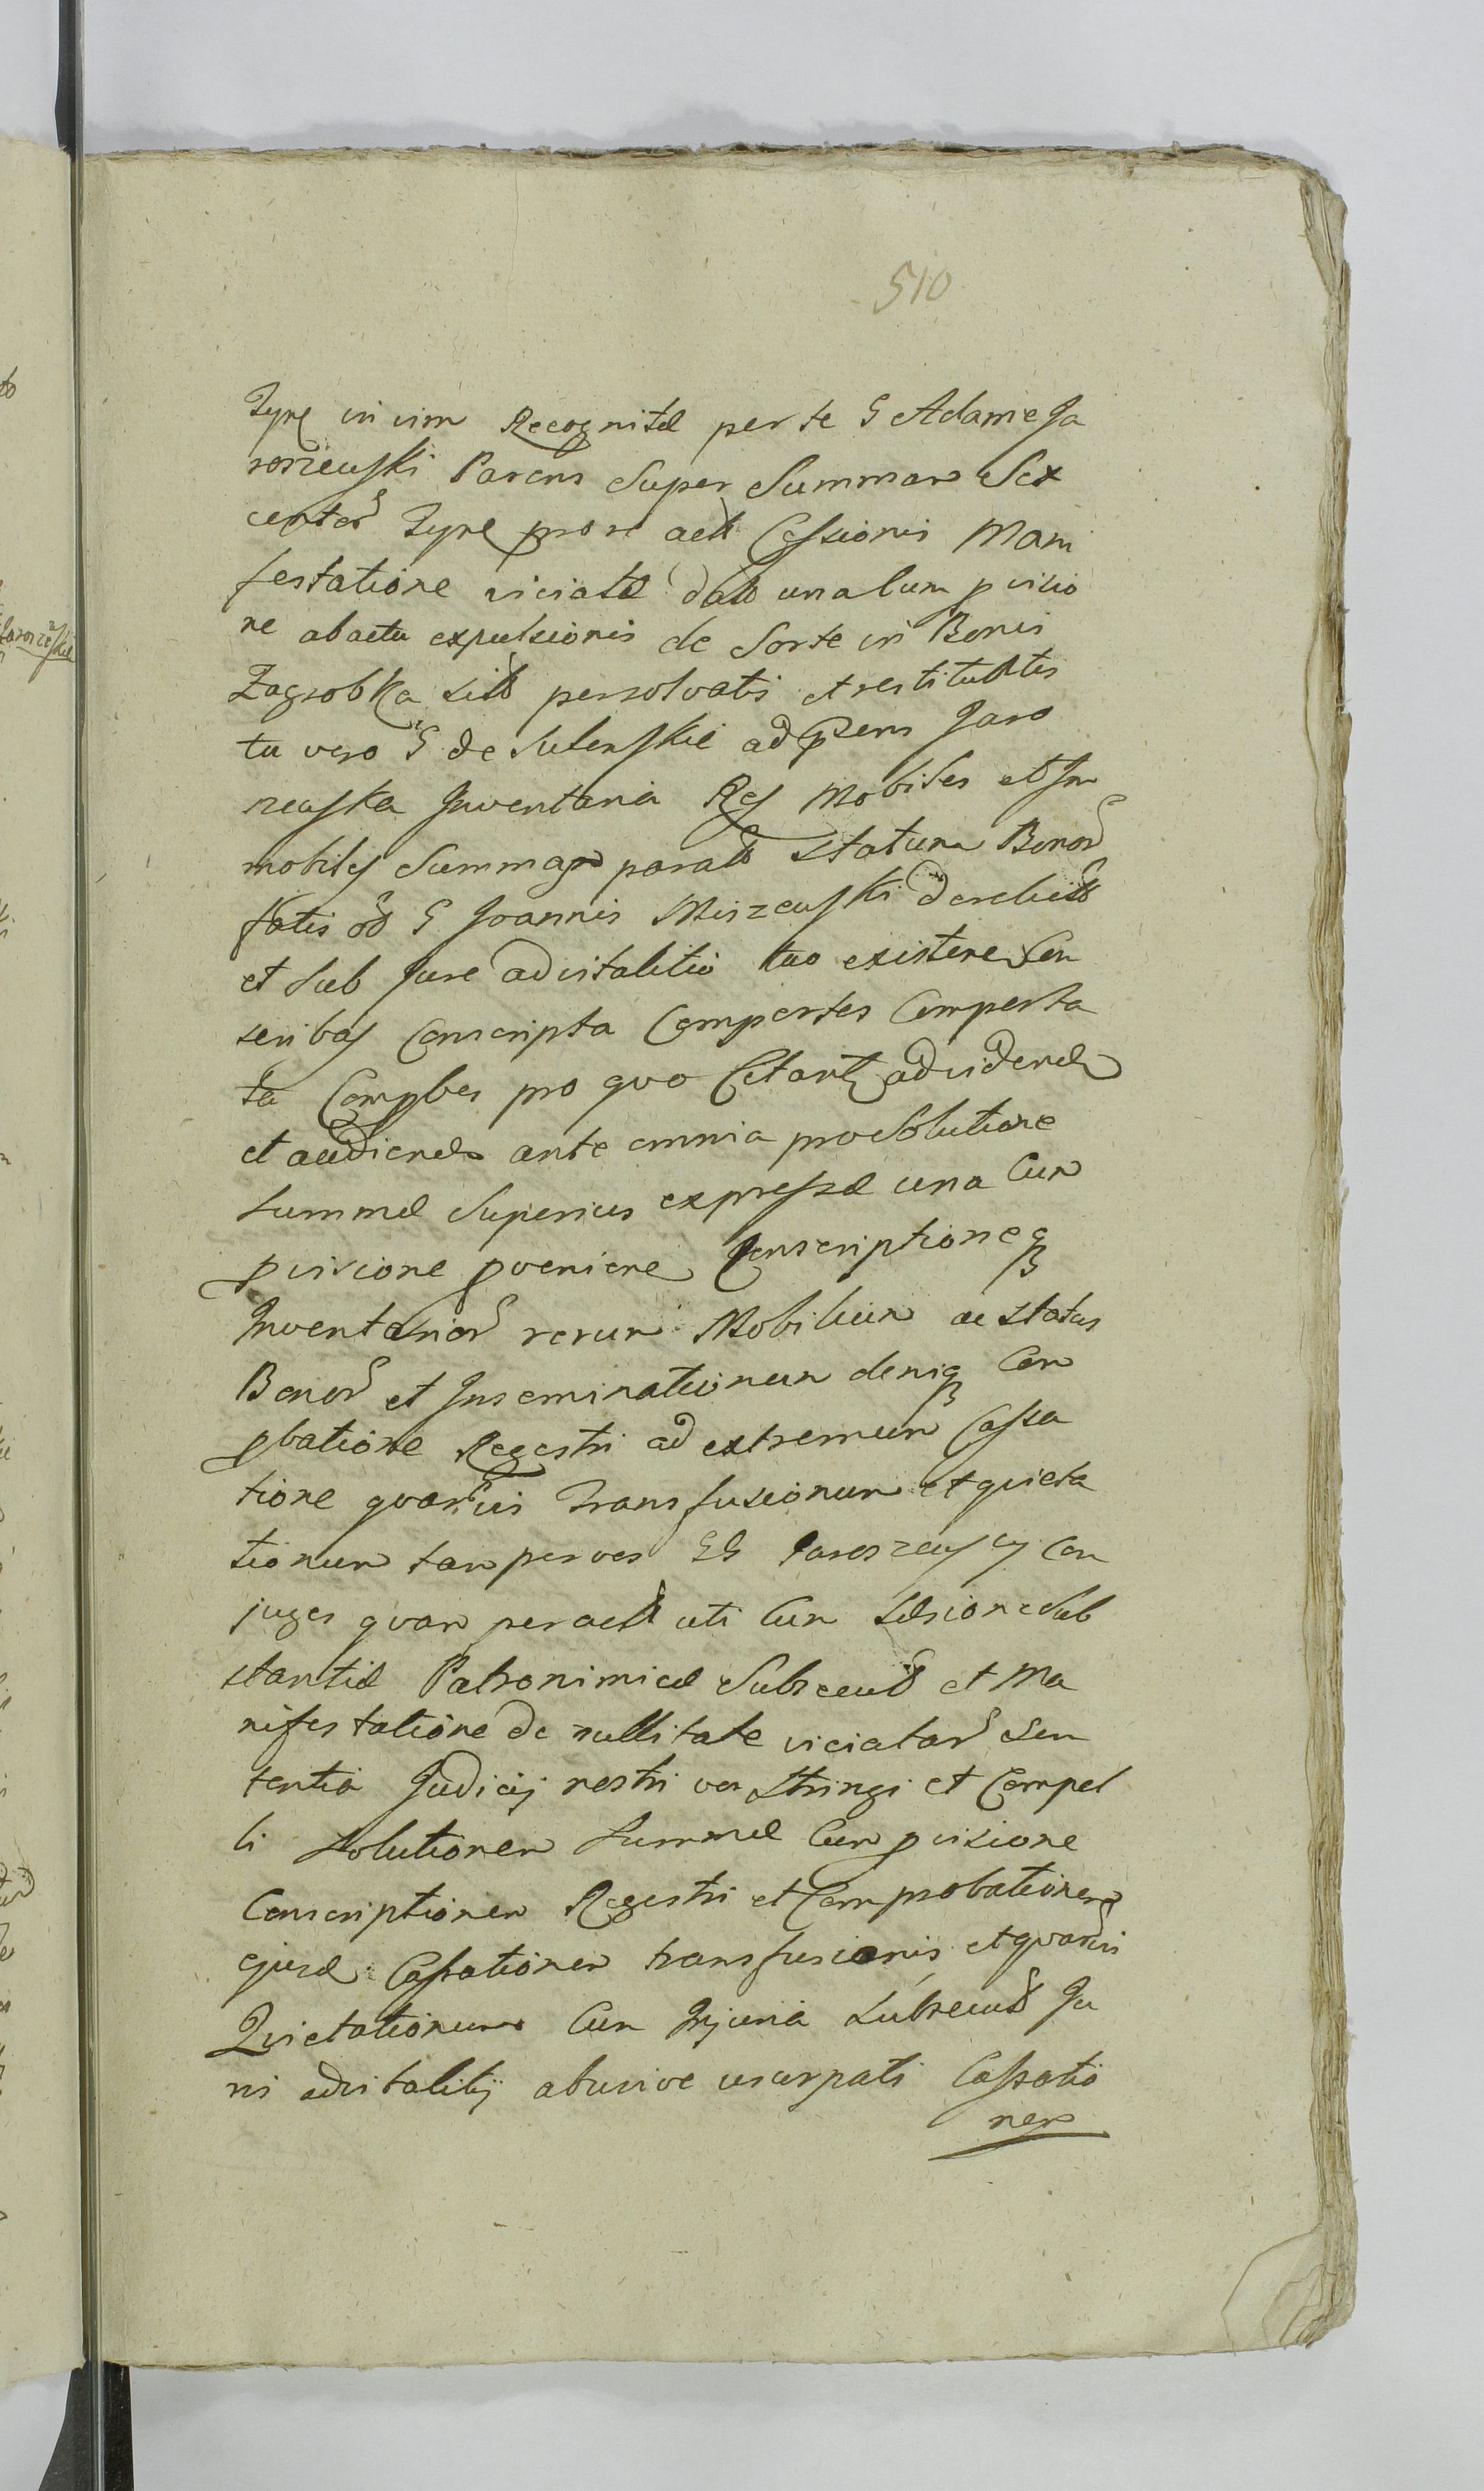 510
Tyn in vim Recognitæ per te G Adame Ja
roszewski Parens Super Summam Sex
center Tyn pro re actt Cessionis Mani
festatione viciatæ datt una cum pvisio
ne ab actu expulsionis de Sorte in Bonis
Zagrobka sitt persolvatis et restituatis
tu vero G de Sulenskie ad psens Jaro
szewska Inventaria Res Mobiles et Im
mobiles Summas paratt Statum Bonor
fatis G Joannis Mirzewski derelictt
et Sub Jure advitalitio tuo existere Con
scribas Conscripta Comportes Comporta
ta Compbes pro quo Citant ad vidend
et audiend ante omnia pro Solutione
Summæ Superius expressæ una Cum
pvisione pveniene Conscriptione q
Inventarior rerum Mobilium ac status
Bonor et Inseminationum deniq Com
pbatione Regestri ad extremum Cassa
tione quarvis Transfusionum et quieta
tionum tam per vos GG Jaroszewscy Con
juges quam per actt uti Cum Læsione Sub
stantiæ Patronimicæ Subsecutt et Ma
nifestatione de nullitate viciatar Sen
tentia Judicij nostri vos Stringi et Compel
li Solutionem Summæ Cum pvisione
Conscriptionem Regestri et Comprobationem
ejusd Cassationem transfusionis et quarvis
Quietationum Cum Injuria Subsecutt Ju
ris advitalitij abusive usurpati Cassatio
nem